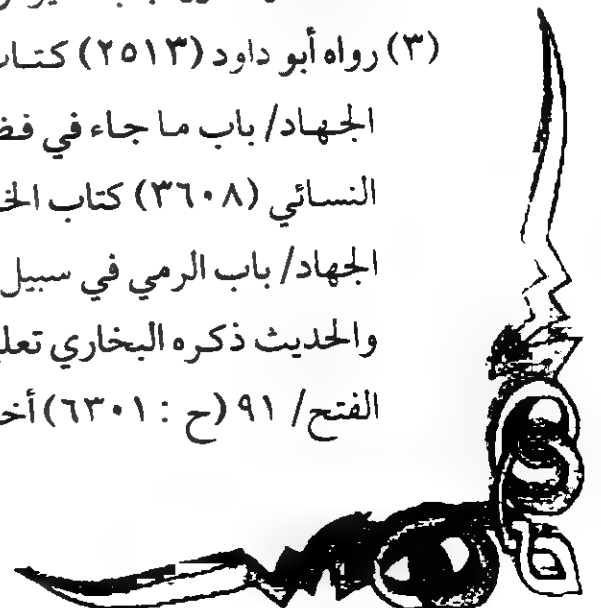 (٣) رواه أبو داود (٢٥١٣) كتـا
الجـهـاد/ باب مـا جـاء في فـض
النسـائي (٣٦٠٨) كتاب الخـ
الجهاد/ باب الرمي في سبيل
والحديث ذكـره البخاري تعليـ
الفتح/ ٩١ (ح : ٦٣٠١) أخـ